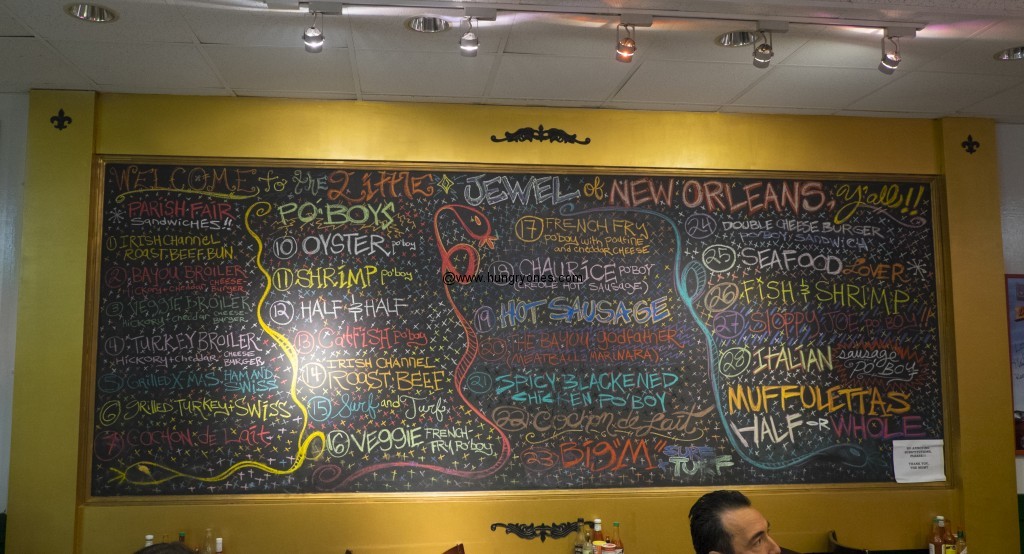 WELCOME to the Little JEWEL of NEW ORLEANS, y'all!!
PARISH-FAIR
SANDWICHES!!
① IRISH CHANNEL
ROAST BEEF BUN.
② BAYOU BROILER
CHEESE
BURGER
③ VEGGIE BROILER
HICKORY + CHEDDAR
④ TURKEY BROILER
HICKORY + CHEDDAR CHEESE
BURGER
⑤ HAM AND
SWISS
⑥ GRILLED TURKEY + SWISS
⑦ COCHON de LAIT
PO'BOYS
⑩ OYSTER po'boy
⑪ SHRIMP po'boy
⑫ HALF & HALF
⑬ CATFISH po'boy
⑭ IRISH CHANNEL
ROAST BEEF
⑮ Surf and Turf
⑯ VEGGIE FRENCH-
FRY PO'BOY
⑰ FRENCH FRY
po'boy with poutine
and cheddar CHEESE
CHAURICE PO'BOY
(CREOLE HOT SAUSAGE)
⑲ HOT SAUSAGE
THE BAYOU GODFATHER
(MEATBALL MARINARA)
㉑ SPICY BLACKENED
CHICKEN PO'BOY
㉒ Cochon de Lait
㉓ BIG "M" SURF
TURF
㉔ DOUBLE CHEESE BURGER
㉕ SEAFOOD LOVER
㉖ FISH & SHRIMP
㉗ SLOPPY JOE PO'BOY!!
㉘ ITALIAN sausage
PO'BOY
MUFFULETTAS
HALF or WHOLE
THANK YOU,
@www.hungryones.com